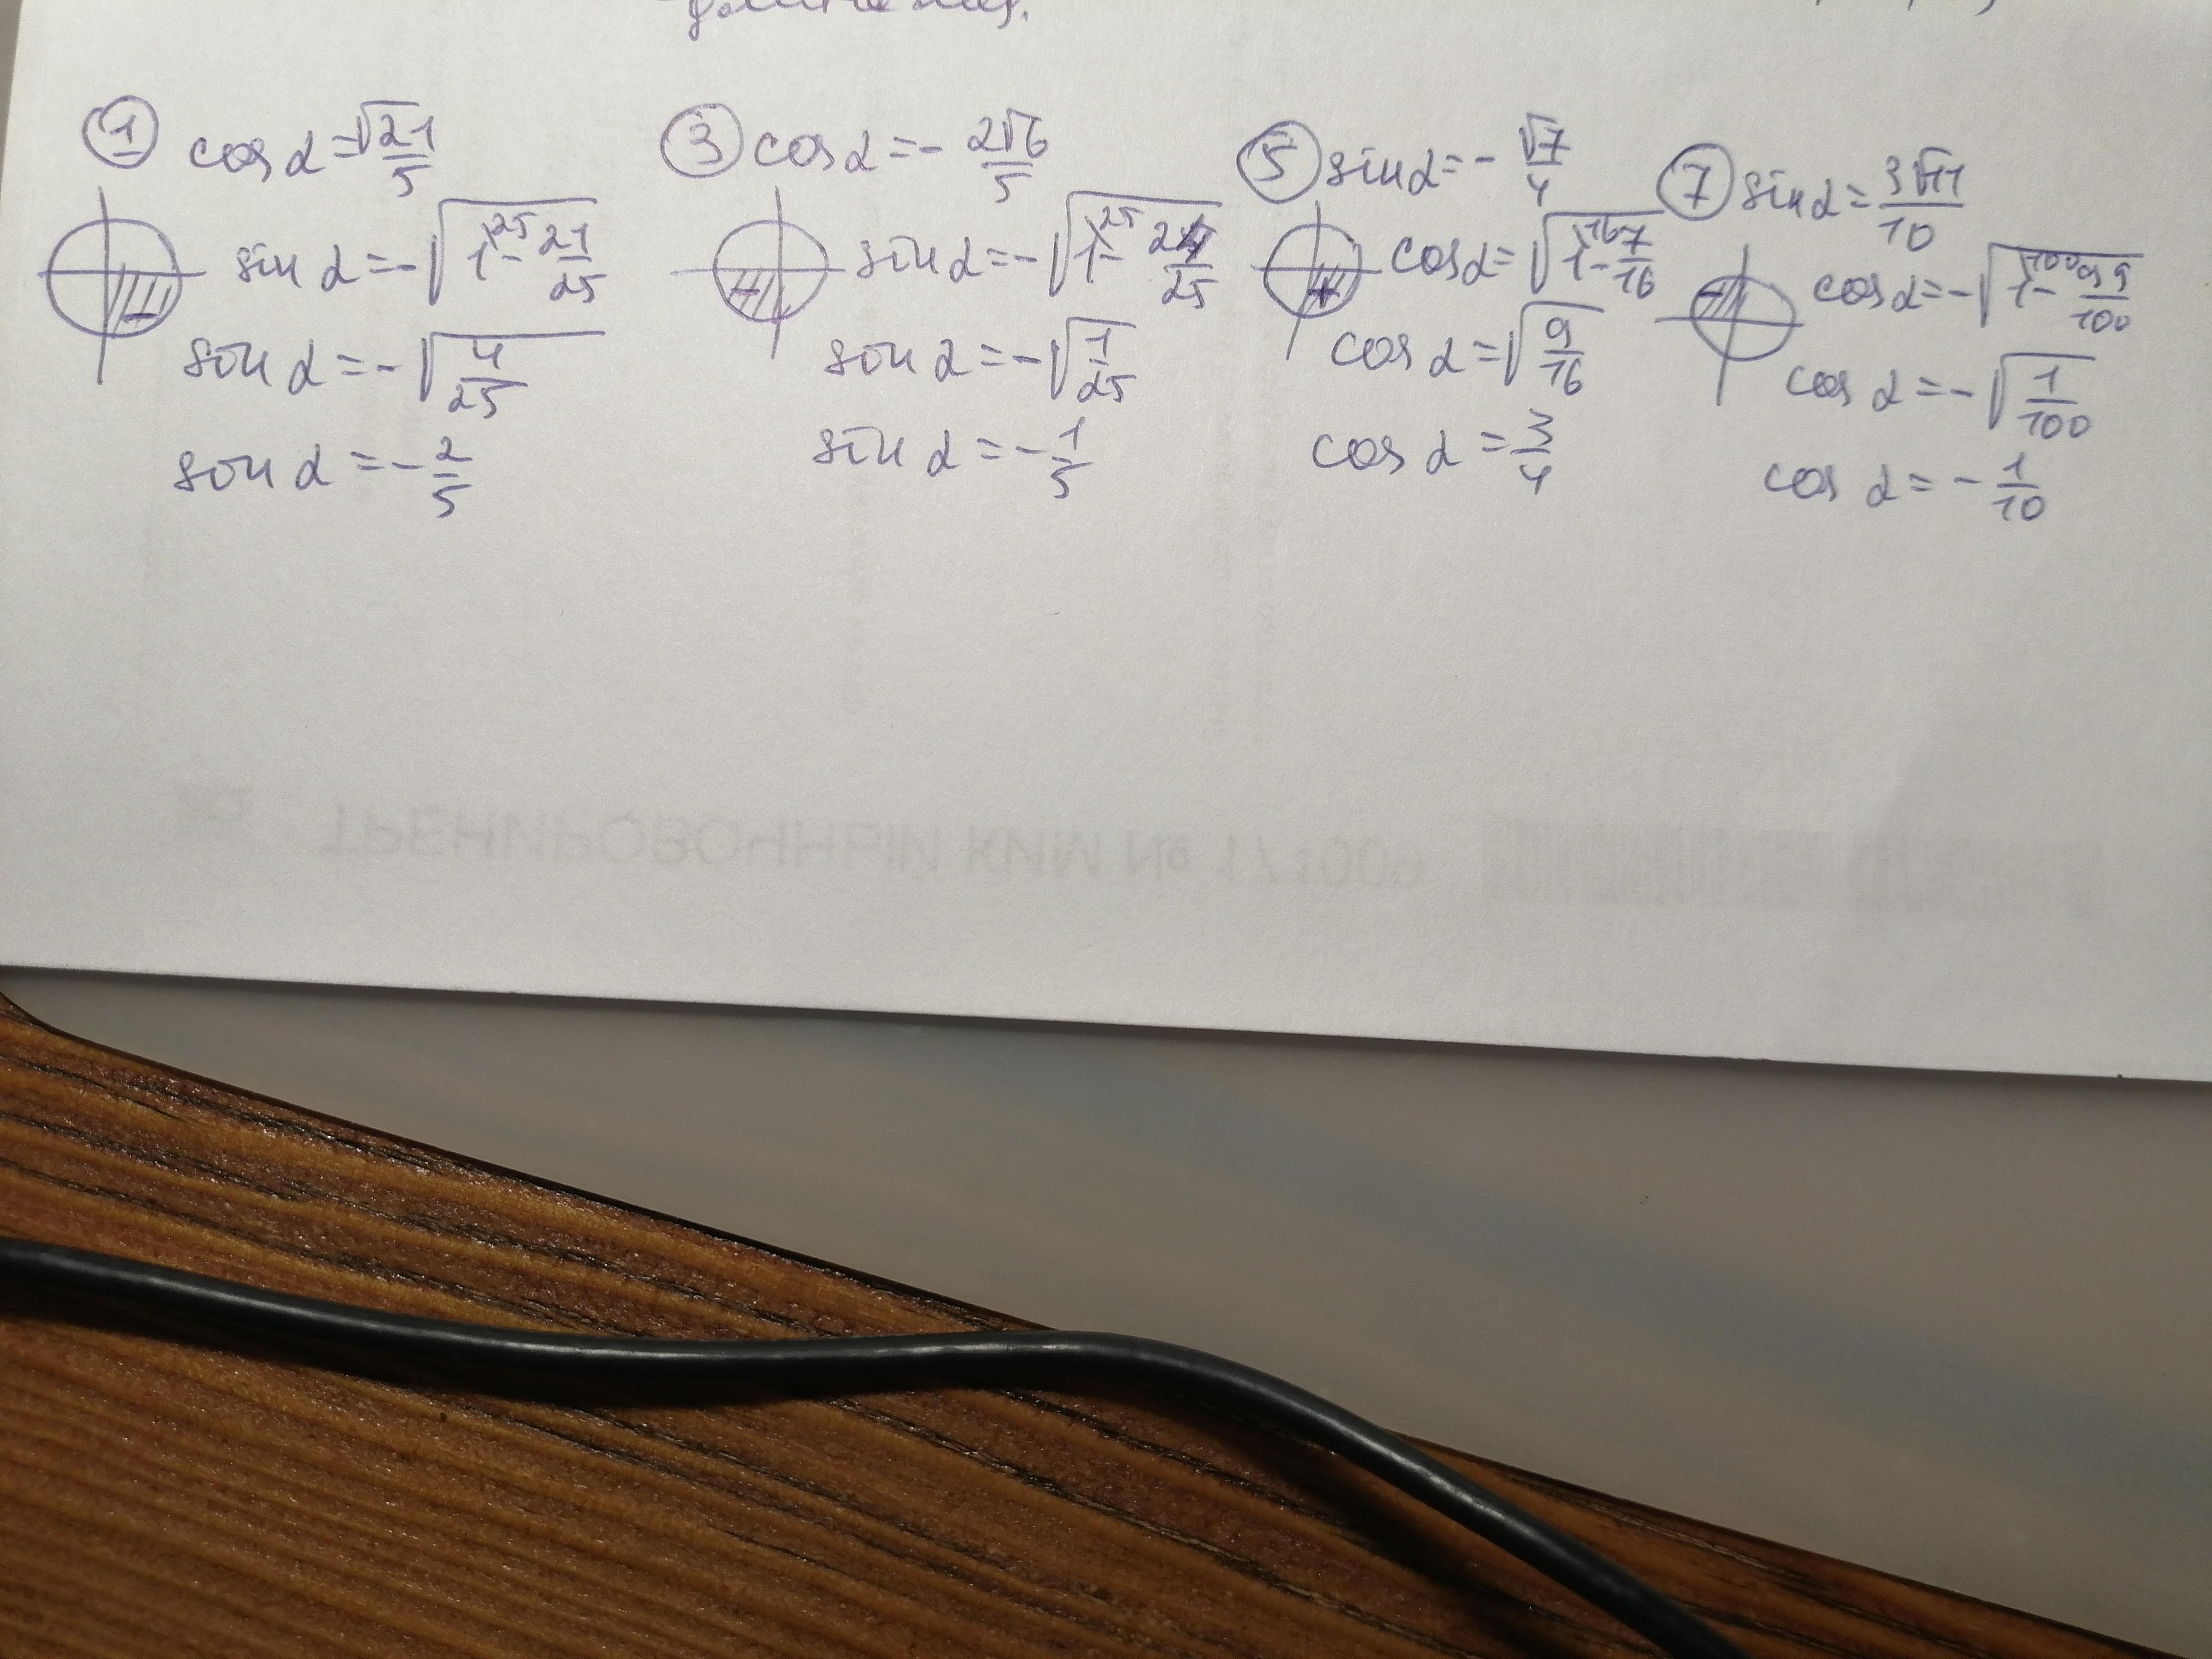 ① cos α = √21/5
sin α = -√(1 - 21/25)
sin α = -√(4/25)
sin α = -2/5
③ cos α = - 2√6/5
sin α = -√(1 - 24/25)
sin α = -√(1/25)
sin α = -1/5
⑤ sin α = - √7/4
cos α = √(1 - 7/16)
cos α = √(9/16)
cos α = 3/4
⑦ sin α = 3√11/10
cos α = -√(1 - 99/100)
cos α = -√(1/100)
cos α = - 1/10
ТРЕНИРОВОЧНЫЙ КИМ №